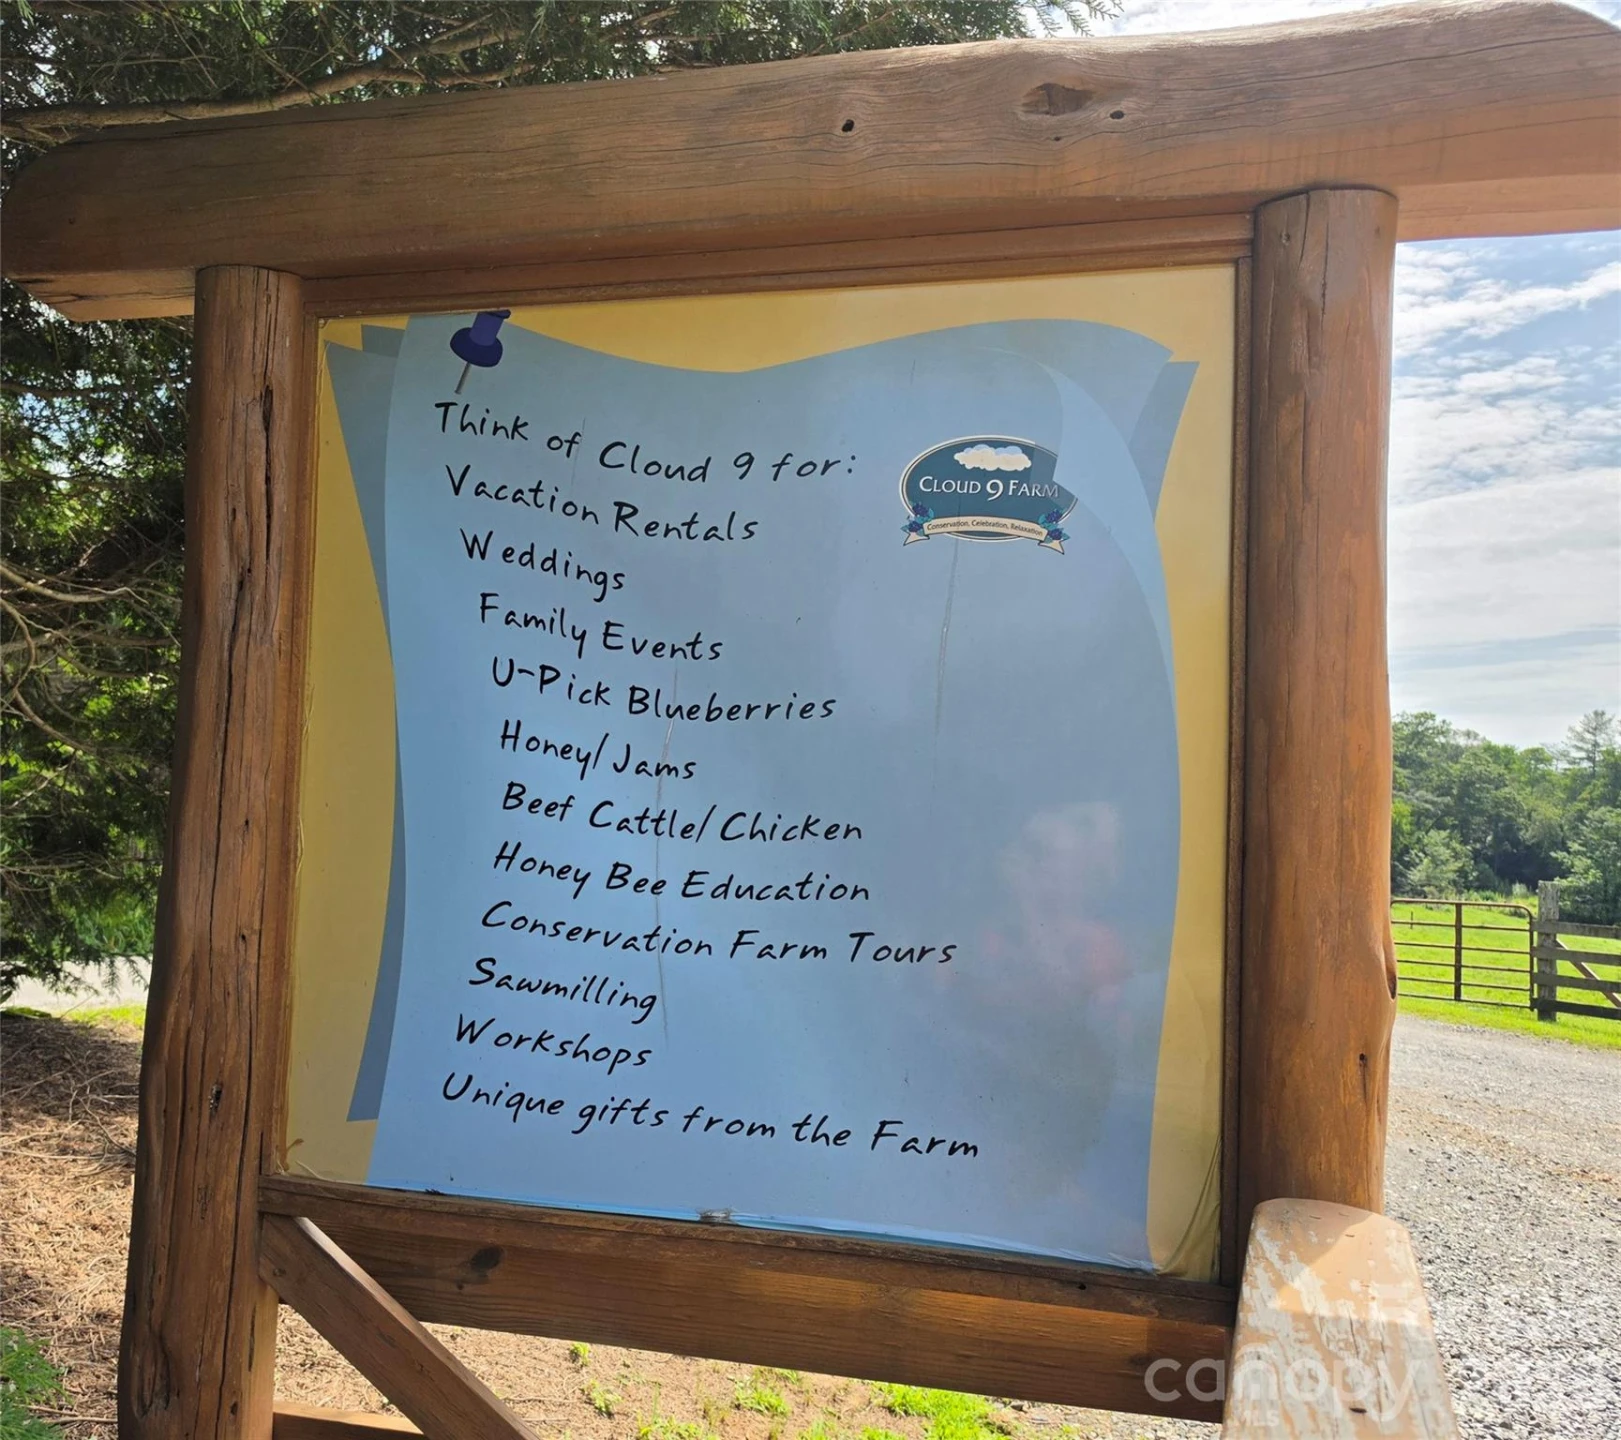 Think of Cloud 9 for:
Vacation Rentals
Weddings
Family Events
U-Pick Blueberries
Honey/Jams
Beef Cattle/Chicken
Honey Bee Education
Conservation Farm Tours
Sawmilling
Workshops
Unique gifts from the Farm
CLOUD 9 FARM
Conservation, Celebration, Relaxation
canopy
MLS